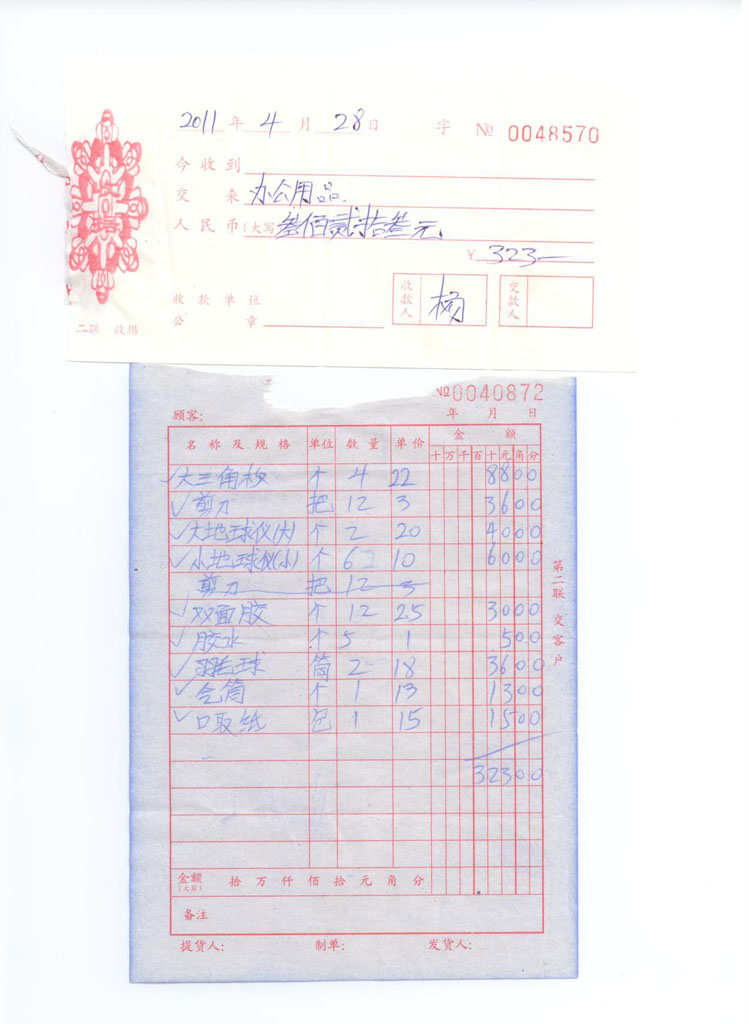 2011 年 4 月 28 日 字 № 0048570
今收到
交来 办公用品
人民币(大写) 叁佰贰拾叁元
¥ 323—
收款单位
公章
收款人 杨
交款人
二联 收据
收据
№0040872
顾客: 年 月 日
名称及规格 单位 数量 单价 金额
十万千百十元角分
✓大三角板 个 4 22 8800
✓剪刀 把 12 3 3600
✓大地球仪(大) 个 2 20 4000
✓小地球仪(小) 个 6 10 6000
剪刀 把 12 3
✓双面胶 个 12 2.5 3000
✓胶水 个 5 1 500
✓羽毛球 筒 2 18 3600
✓ 筒 个 1 13 1300
✓口取纸 包 1 15 1500
32300
金额(大写) 拾万仟佰拾元角分
备注
提货人: 制单: 发货人:
第二联 交客户